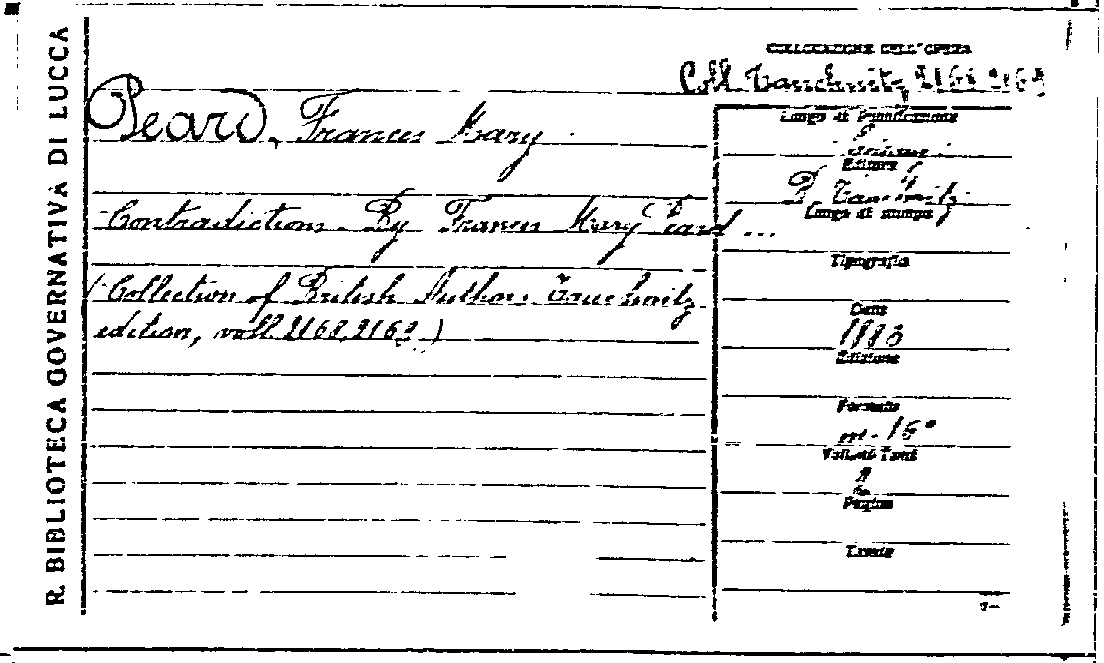 R. BIBLIOTECA GOVERNATIVA DI LUCCA
COLLOCAZIONE DELL'OPERA
Coll. Tauchnitz 2168-2169
Peard, Frances Mary
Contradictions. By Frances Mary Peard ...
(Collection of British Authors Tauchnitz
edition, voll. 2168, 2169)
Luogo di Pubblicazione
Editore
B. Tauchnitz
Luogo di stampa
Tipografia
Data
1883
Edizione
Formato
m-16°
Vol. and Tomi
2
Pagine
Tavole